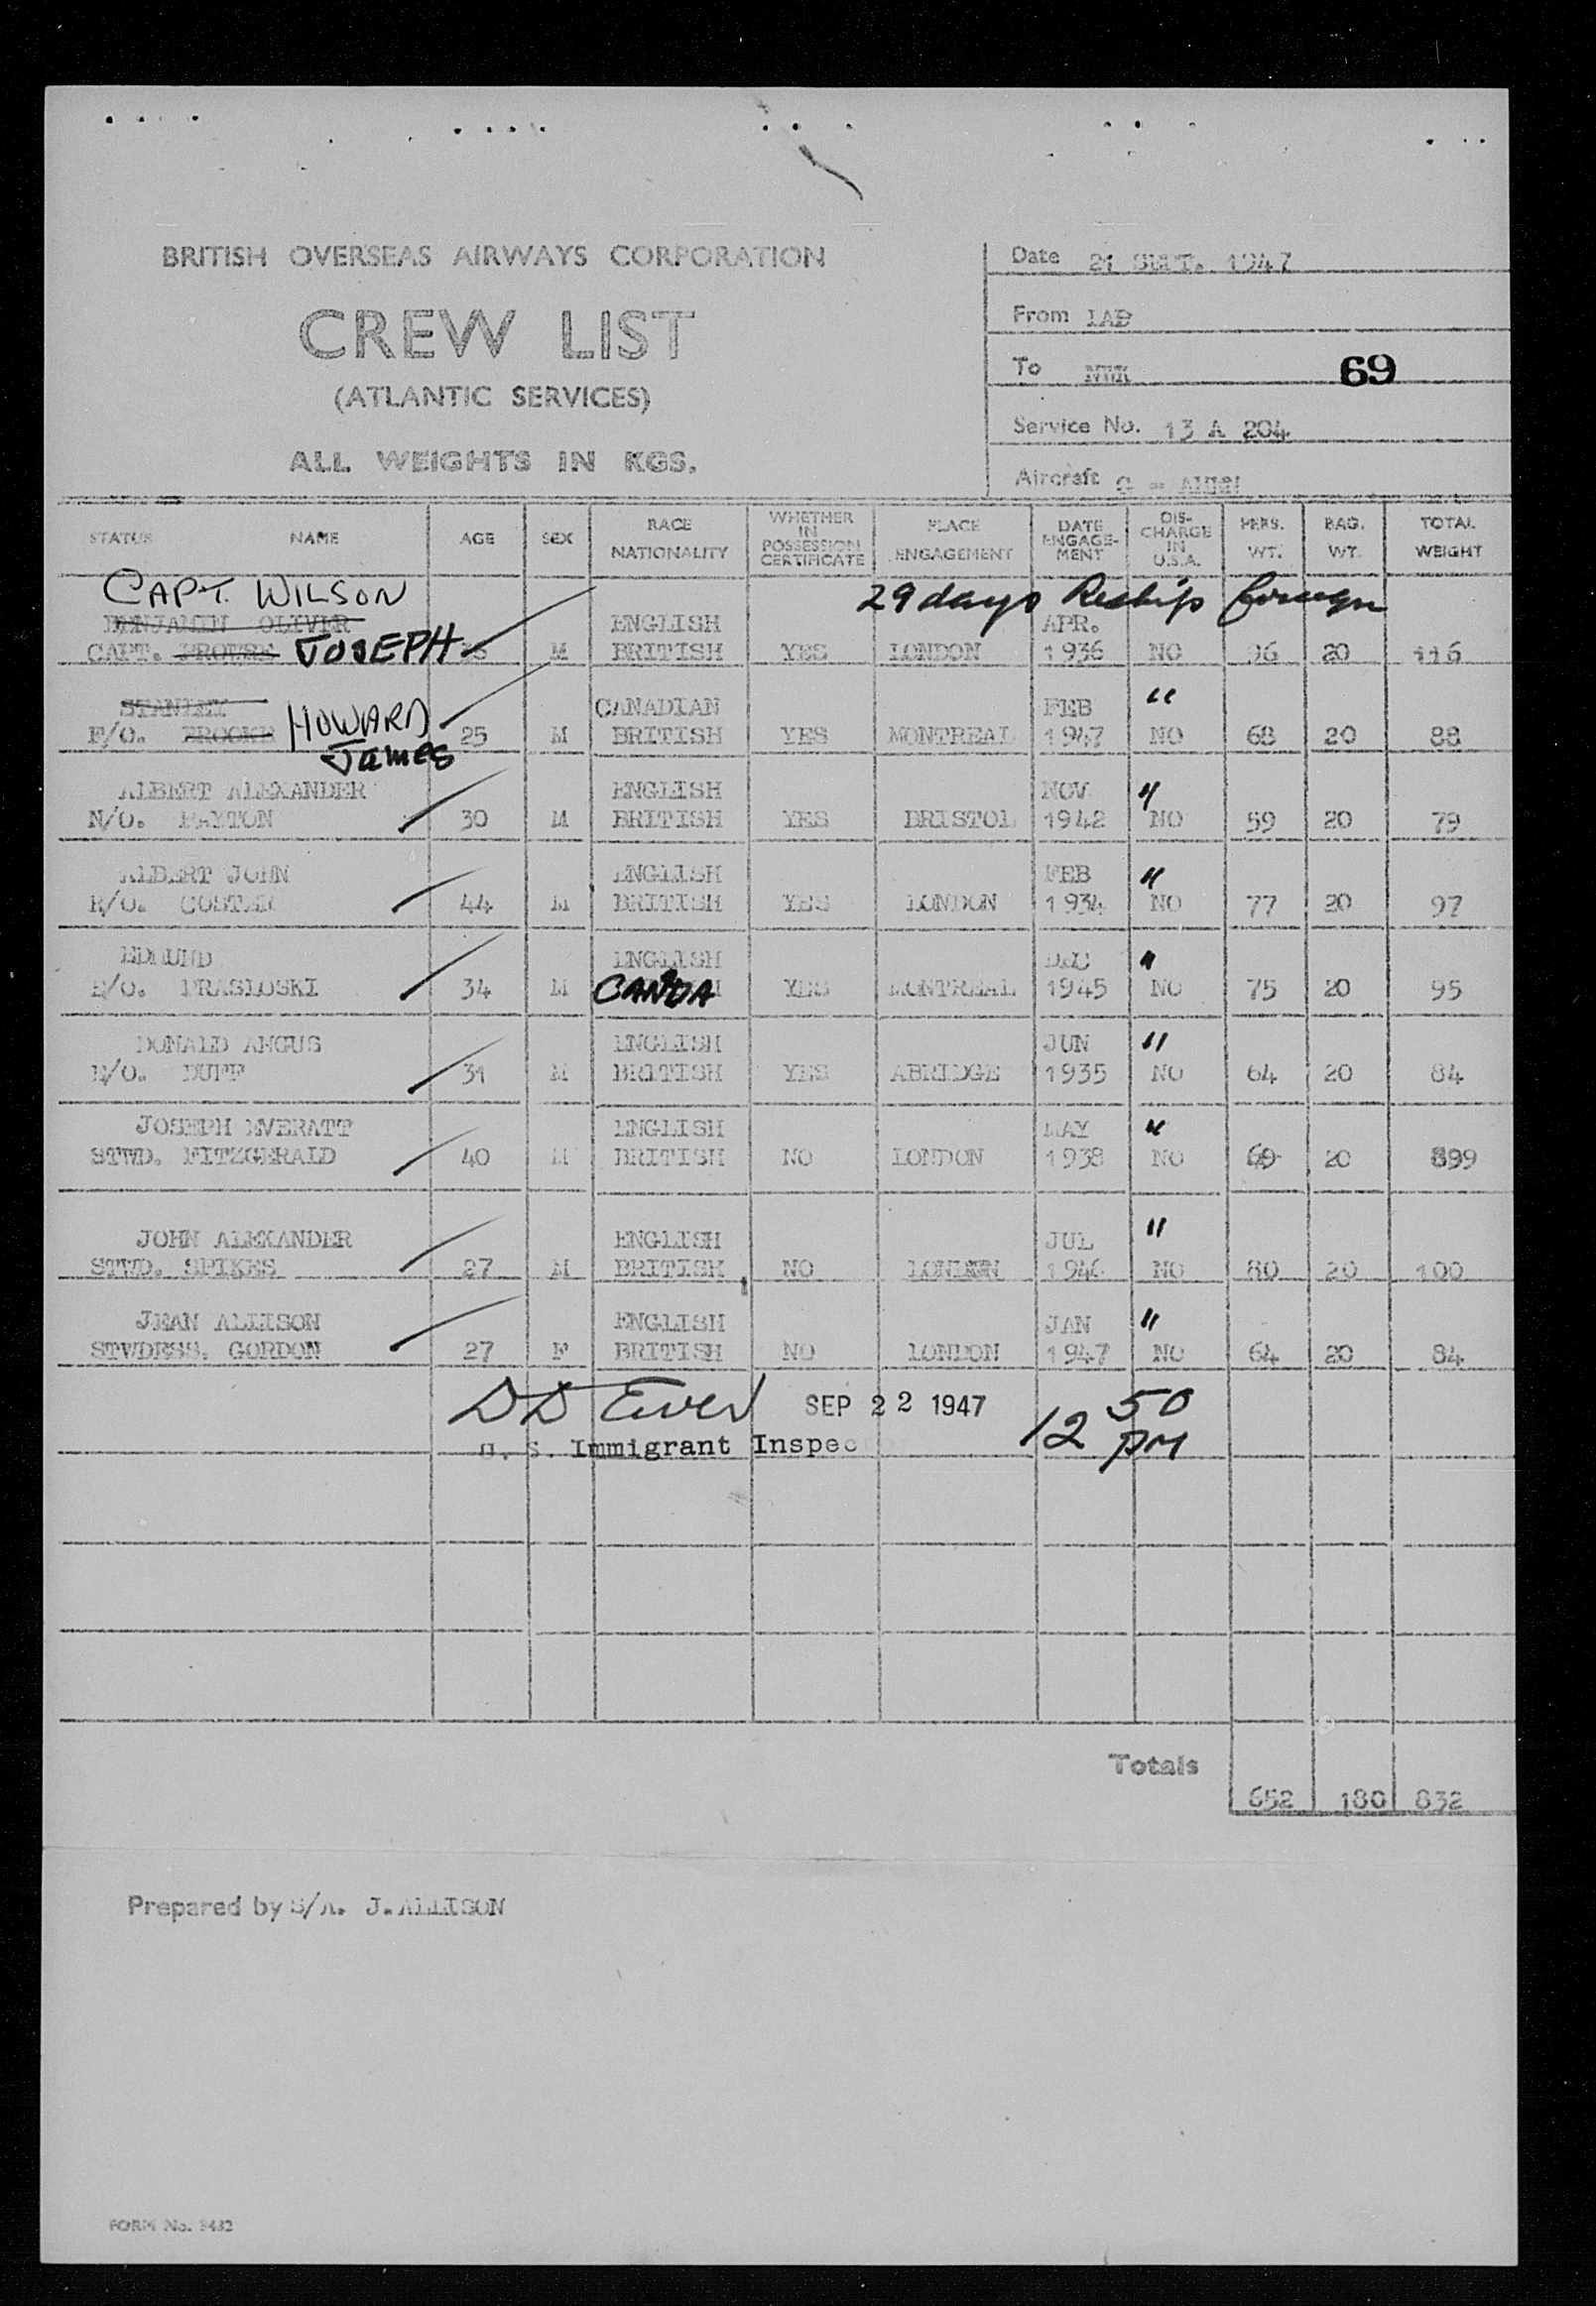 BRITISH OVERSEAS AIRWAYS CORPORATION
CREW LIST
(ATLANTIC SERVICES)
ALL WEIGHTS IN KGS.
Date 21 SEPT. 1947
From LAP
To
69
Service No. 13 A 204
Aircraft G -
STATUS NAME AGE SEX RACE NATIONALITY WHETHER IN POSSESSION CERTIFICATE PLACE ENGAGEMENT DATE ENGAGE-MENT DIS-CHARGE IN U.S.A. PERS. WT. BAG. WT. TOTAL WEIGHT
CAPT. WILSON 29 days Reship foreign
BENJAMIN OLIVER ENGLISH APR.
CAPT. JOSEPH M BRITISH YES LONDON 1936 NO 96 20 116
STANLEY CANADIAN FEB "
F/O. BROOKE HOWARD 25 M BRITISH YES MONTREAL 1947 NO 68 20 88
James
ALBERT ALEXANDER ENGLISH NOV "
N/O. PAYTON 30 M BRITISH YES BRISTOL 1942 NO 59 20 79
ALBERT JOHN ENGLISH FEB "
R/O. COSTER 44 M BRITISH YES LONDON 1934 NO 77 20 97
EDMUND ENGLISH DEC "
E/O. PRASLOSKI 34 M CANDA YES MONTREAL 1945 NO 75 20 95
DONALD ANGUS ENGLISH JUN "
E/O. DUFF 31 M BRITISH YES ABRIDGE 1935 NO 64 20 84
JOSEPH EVERATT ENGLISH MAY "
STWD. FITZGERALD 40 M BRITISH NO LONDON 1938 NO 69 20 899
JOHN ALEXANDER ENGLISH JUL "
STWD. SPIKES 27 M BRITISH NO LONDON 1946 NO 80 20 100
JEAN ALLISON ENGLISH JAN "
STWDRSS. GORDON 27 F BRITISH NO LONDON 1947 NO 64 20 84
SEP 22 1947 12 50 PM
U. S. Immigrant Inspec
Totals
652 180 832
Prepared by S/A. J.ALLISON
FORM No. 3432